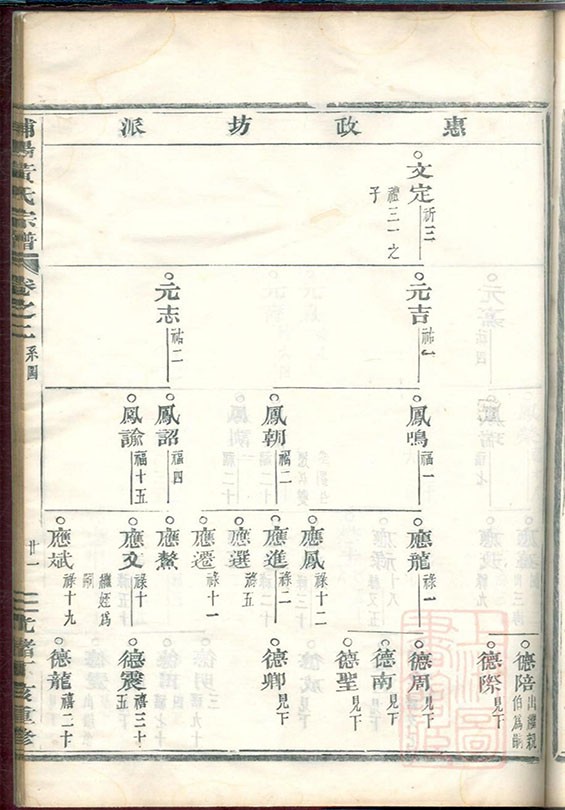 惠政坊派
文定
祈三
禮三一之
子
元吉
祐一
元志
祐二
鳳鳴
福一
鳳朝
福二
鳳詔
福四
鳳諭
福十五
應龍
祿一
應鳳
祿十二
應進
祿二
應選
祿五
應遷
祿十一
應鰲
應文
祿十
應斌
祿十九
繼姪為
嗣
德陪
出繼親
伯為嗣
德際
見下
德周
見下
德南
見下
德聖
見下
德卿
見下
德震
禧三十
五下
德龍
禧二十
浦陽黃氏宗譜
卷之二
系圖
廿一
光緒丁亥重修